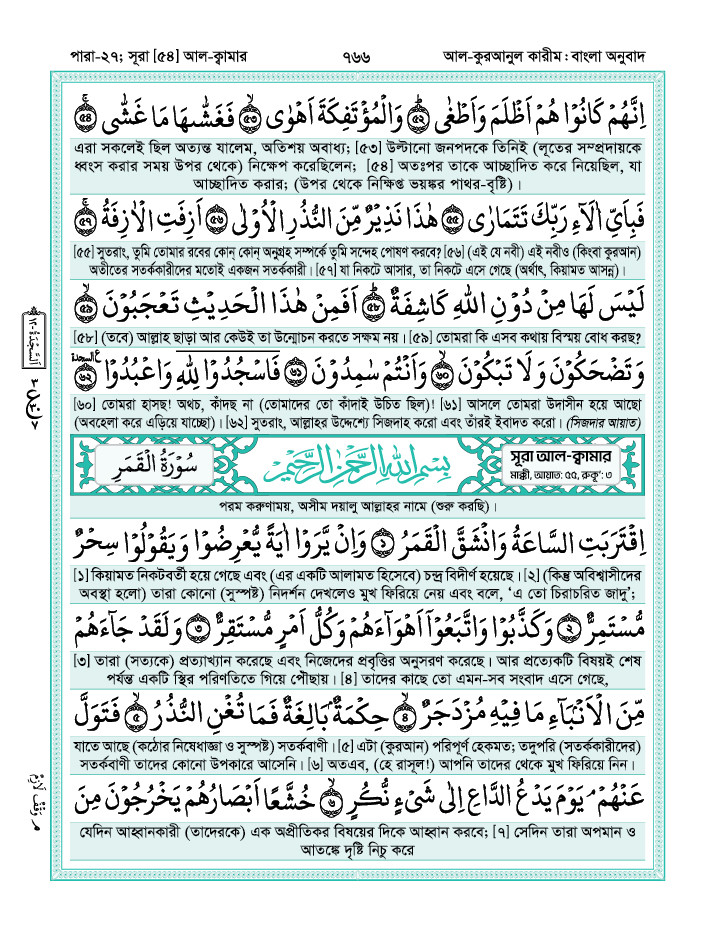 পারা-২৭; সূরা [৫৪] আল-ক্বামার
৭৬৬
আল-কুরআনুল কারীম : বাংলা অনুবাদ
اِنَّهُمْ كَانُوْا هُمْ اَظْلَمَ وَاَطْغٰى ۝٥٢ وَالْمُؤْتَفِكَةَ اَهْوٰى ۝٥٣ فَغَشّٰىهَا مَا غَشّٰى ۝٥٤
এরা সকলেই ছিল অত্যন্ত যালেম, অতিশয় অবাধ্য; [৫৩] উল্টানো জনপদকে তিনিই (লূতের সম্প্রদায়কে
ধ্বংস করার সময় উপর থেকে) নিক্ষেপ করেছিলেন; [৫৪] অতঃপর তাকে আচ্ছাদিত করে নিয়েছিল, যা
আচ্ছাদিত করার; (উপর থেকে নিক্ষিপ্ত ভয়ঙ্কর পাথর-বৃষ্টি)।
فَبِاَيِّ اٰلَآءِ رَبِّكَ تَتَمَارٰى ۝٥٥ هٰذَا نَذِيْرٌ مِّنَ النُّذُرِ الْاُوْلٰى ۝٥٦ اَزِفَتِ الْاٰزِفَةُ ۝٥٧
[৫৫] সুতরাং, তুমি তোমার রবের কোন্ কোন্ অনুগ্রহ সম্পর্কে তুমি সন্দেহ পোষণ করবে? [৫৬] (এই যে নবী) এই নবীও (কিংবা কুরআন)
অতীতের সতর্ককারীদের মতোই একজন সতর্ককারী। [৫৭] যা নিকটে আসার, তা নিকটে এসে গেছে (অর্থাৎ, কিয়ামত আসন্ন)।
لَيْسَ لَهَا مِنْ دُوْنِ اللّٰهِ كَاشِفَةٌ ۝٥٨ اَفَمِنْ هٰذَا الْحَدِيْثِ تَعْجَبُوْنَ ۝٥٩
[৫৮] (তবে) আল্লাহ ছাড়া আর কেউই তা উন্মোচন করতে সক্ষম নয়। [৫৯] তোমরা কি এসব কথায় বিস্ময় বোধ করছ?
وَتَضْحَكُوْنَ وَلَا تَبْكُوْنَ ۝٦٠ وَاَنْتُمْ سٰمِدُوْنَ ۝٦١ فَاسْجُدُوْا لِلّٰهِ وَاعْبُدُوْا ۝٦٢
[৬০] তোমরা হাসছ! অথচ, কাঁদছ না (তোমাদের তো কাঁদাই উচিত ছিল)! [৬১] আসলে তোমরা উদাসীন হয়ে আছো
(অবহেলা করে এড়িয়ে যাচ্ছো)। [৬২] সুতরাং, আল্লাহর উদ্দেশ্যে সিজদাহ করো এবং তাঁরই ইবাদত করো। (সিজদার আয়াত)
اَلسَّجْدَةُ ١٢
سُوْرَةُ الْقَمَرِ
بِسْمِ اللّٰهِ الرَّحْمٰنِ الرَّحِيْمِ
সূরা আল-ক্বামার
মাক্কী, আয়াত: ৫৫, রুকূ': ৩
পরম করুণাময়, অসীম দয়ালু আল্লাহর নামে (শুরু করছি)।
اِقْتَرَبَتِ السَّاعَةُ وَانْشَقَّ الْقَمَرُ ۝١ وَاِنْ يَّرَوْا اٰيَةً يُّعْرِضُوْا وَيَقُوْلُوْا سِحْرٌ
[১] কিয়ামত নিকটবর্তী হয়ে গেছে এবং (এর একটি আলামত হিসেবে) চন্দ্র বিদীর্ণ হয়েছে। [২] (কিন্তু অবিশ্বাসীদের
অবস্থা হলো) তারা কোনো (সুস্পষ্ট) নিদর্শন দেখলেও মুখ ফিরিয়ে নেয় এবং বলে, ‘এ তো চিরাচরিত জাদু’;
مُّسْتَمِرٌّ ۝٢ وَكَذَّبُوْا وَاتَّبَعُوْٓا اَهْوَآءَهُمْ وَكُلُّ اَمْرٍ مُّسْتَقِرٌّ ۝٣ وَلَقَدْ جَآءَهُمْ
[৩] তারা (সত্যকে) প্রত্যাখ্যান করেছে এবং নিজেদের প্রবৃত্তির অনুসরণ করেছে। আর প্রত্যেকটি বিষয়ই শেষ
পর্যন্ত একটি স্থির পরিণতিতে গিয়ে পৌছায়। [৪] তাদের কাছে তো এমন-সব সংবাদ এসে গেছে,
مِّنَ الْاَنْۢبَآءِ مَا فِيْهِ مُزْدَجَرٌ ۝٤ حِكْمَةٌۢ بَالِغَةٌ فَمَا تُغْنِ النُّذُرُ ۝٥ فَتَوَلَّ
যাতে আছে (কঠোর নিষেধাজ্ঞা ও সুস্পষ্ট) সতর্কবাণী। [৫] এটা (কুরআন) পরিপূর্ণ হেকমত; তদুপরি (সতর্ককারীদের)
সতর্কবাণী তাদের কোনো উপকারে আসেনি। [৬] অতএব, (হে রাসূল!) আপনি তাদের থেকে মুখ ফিরিয়ে নিন।
عَنْهُمْ ۘ يَوْمَ يَدْعُ الدَّاعِ اِلٰى شَىْءٍ نُّكُرٍ ۝٦ خُشَّعًا اَبْصَارُهُمْ يَخْرُجُوْنَ مِنَ
যেদিন আহ্বানকারী (তাদেরকে) এক অপ্রীতিকর বিষয়ের দিকে আহ্বান করবে; [৭] সেদিন তারা অপমান ও
আতঙ্কে দৃষ্টি নিচু করে
وَقْف لَازِم